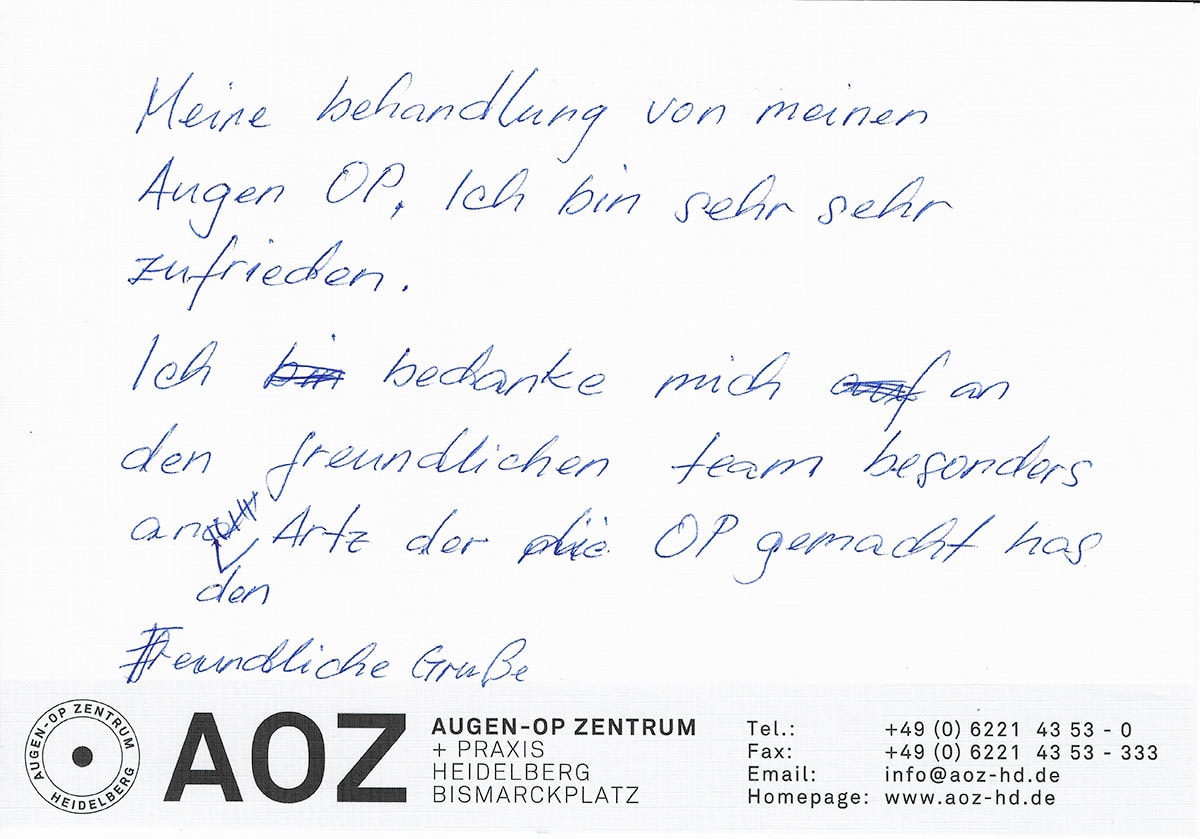 Meine behandlung von meinen
Augen OP. Ich bin sehr sehr
zufrieden.
Ich bin bedanke mich auf an
den freundlichen team besonders
an den Artz der die OP gemacht has
Freundliche Gruße
AUGEN-OP ZENTRUM HEIDELBERG
AOZ
AUGEN-OP ZENTRUM
+ PRAXIS
HEIDELBERG
BISMARCKPLATZ
Tel.: +49 (0) 6221 43 53 - 0
Fax: +49 (0) 6221 43 53 - 333
Email: info@aoz-hd.de
Homepage: www.aoz-hd.de